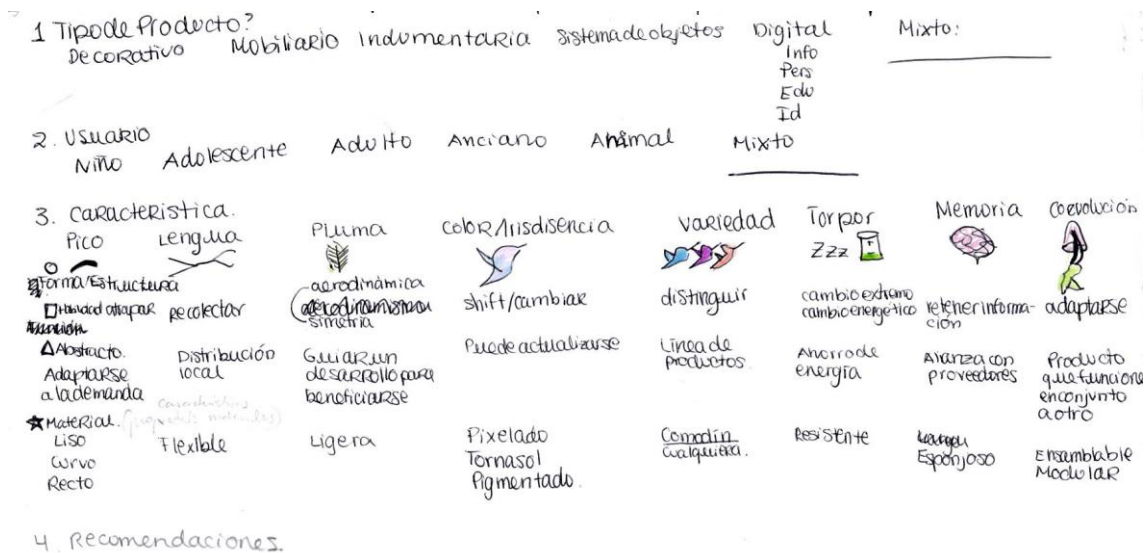 1 Tipo de Producto?
Decorativo Mobiliario Indumentaria Sistema de objetos Digital Mixto:
Info
Pers
Edu
Id
2. Usuario
Niño Adolescente Adulto Anciano Animal Mixto
3. Caracteristica.
Pico Lengua Pluma Color/Irisdisencia Variedad Torpor Memoria Coevolución
Zzz
Forma/Estructura aerodinámica
atrapar recolectar simetria shift/cambiar distinguir cambio extremo cambio energético retener información adaptarse
Abstracto.
Adaptarse a la demanda
Distribución local
Guiar un desarrollo para beneficiarse
Puede actualizarse
Linea de productos.
Ahorro de energía
Alianza con proveedores
Producto que funcione en conjunto a otro
Material.
Liso
Curvo
Recto
Flexible
Ligera
Pixelado
Tornasol
Pigmentado.
Comodín
cualquiera.
Resistente
Esponjoso
Ensamblable
Modular
4 Recomendaciones